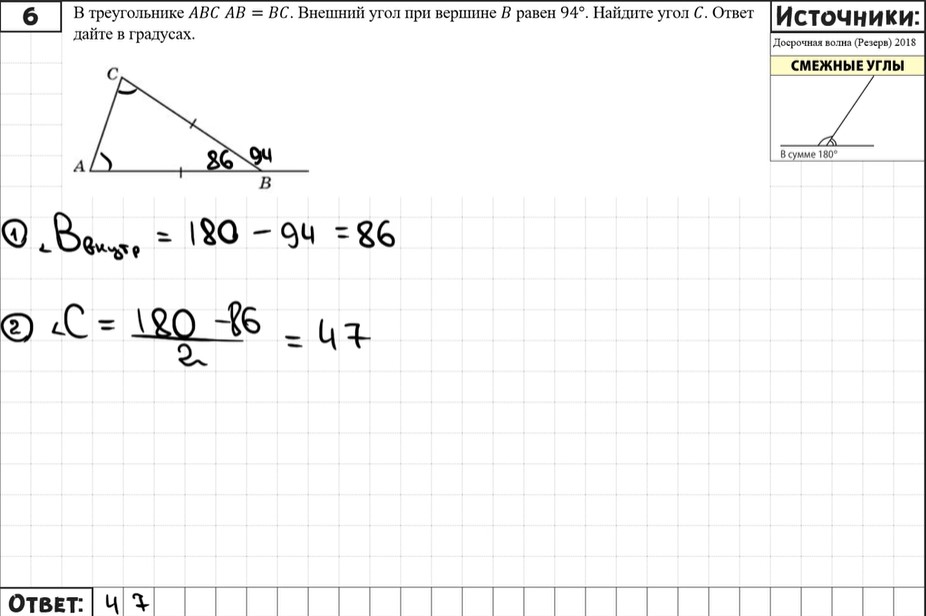 6
В треугольнике ABC AB = BC. Внешний угол при вершине B равен 94°. Найдите угол C. Ответ
дайте в градусах.
Источники:
Досрочная волна (Резерв) 2018
СМЕЖНЫЕ УГЛЫ
В сумме 180°
C
A
86
94
B
① ∠Bвнутр = 180 - 94 = 86
② ∠C = 180 - 86
2
= 47
ОТВЕТ: 47